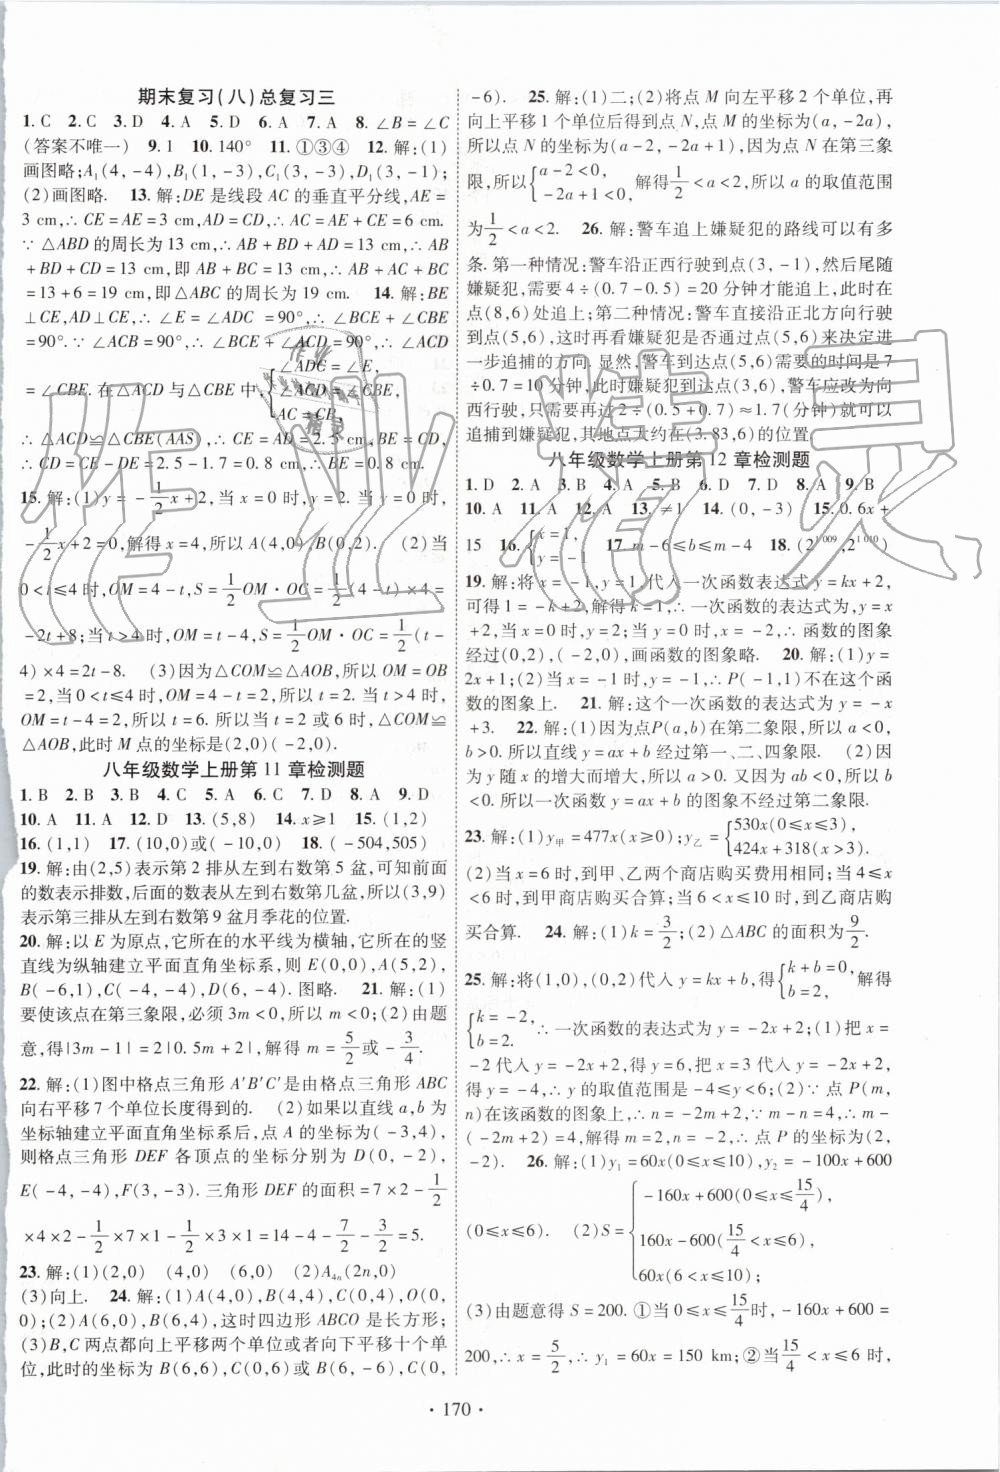 期末复习(八)总复习三
1. C 2. C 3. D 4. A 5. D 6. A 7. A 8. ∠B=∠C
(答案不唯一) 9. 1 10. 140° 11. ①③④ 12. 解:(1)
画图略;A₁(4,-4),B(1,-3),C₁(3,-3),D(3,-1);
(2)画图略. 13. 解:DE是线段AC的垂直平分线,AE=
3 cm,∴CE=AE=3 cm,AD=CD,∴AC=AE+CE=6 cm.
∵△ABD的周长为13 cm,∴AB+BD+AD=13 cm,∴AB
+BD+CD=13 cm,即AB+BC=13 cm,∴AB+AC+BC
=13+6=19 cm,即△ABC的周长为19 cm. 14. 解:BE
⊥CE,AD⊥CE,∴∠E=∠ADC=90°,∴∠BCE+∠CBE
=90°. ∵∠ACB=90°,∴∠BCE+∠ACD=90°,∴∠ACD
=∠CBE. 在△ACD与△CBE中,{∠ADC=∠E, ∠ACD=∠CBE, AC=CB,
∴△ACD≌△CBE(AAS),∴CE=AD=2.5 cm,BE=CD,
∴CD=CE-DE=2.5-1.7=0.8 cm,∴BE=0.8 cm.
15. 解:(1)y=-1/2x+2,当x=0时,y=2,当y=0时,
-1/2x+2=0,解得x=4,所以A(4,0),B(0,2). (2)当
0<t≤4时,OM=4-t,S=1/2OM·OC=1/2(4-t)×4=
-2t+8;当t>4时,OM=t-4,S=1/2OM·OC=1/2(t-
4)×4=2t-8. (3)因为△COM≌△AOB,所以OM=OB
=2,当0<t≤4时,OM=4-t=2,所以t=2. 当t>4时,
OM=t-4=2,所以t=6. 所以当t=2或6时,△COM≌
△AOB,此时M点的坐标是(2,0)(-2,0).
八年级数学上册第11章检测题
1. B 2. B 3. B 4. C 5. A 6. C 7. D 8. A 9. D
10. A 11. A 12. D 13. (5,8) 14. x≥1 15. (1,2)
16. (1,1) 17. (10,0)或(-10,0) 18. (-504,505)
19. 解:由(2,5)表示第2排从左到右数第5盆,可知前面
的数表示排数,后面的数表从左到右数第几盆,所以(3,9)
表示第三排从左到右数第9盆月季花的位置.
20. 解:以E为原点,它所在的水平线为横轴,它所在的竖
直线为纵轴建立平面直角坐标系,则E(0,0),A(5,2),
B(-6,1),C(-4,-4),D(6,-4).图略. 21. 解:(1)
要使该点在第三象限,必须3m<0,所以m<0;(2)由题
意,得|3m-1|=2|0.5m+2|,解得m=5/2或-3/4.
22. 解:(1)图中格点三角形A′B′C′是由格点三角形ABC
向右平移7个单位长度得到的. (2)如果以直线a,b为
坐标轴建立平面直角坐标系后,点A的坐标为(-3,4),
则格点三角形DEF各顶点的坐标分别为D(0,-2),
E(-4,-4),F(3,-3).三角形DEF的面积=7×2-1/2
×4×2-1/2×7×1-1/2×3×1=14-4-7/2-3/2=5.
23. 解:(1)(2,0) (4,0) (6,0) (2)A₄ₙ(2n,0)
(3)向上. 24. 解:(1)A(4,0),B(4,4),C(0,4),O(0,
0);(2)A(6,0),B(6,4),这时四边形ABCO是长方形;
(3)B,C两点都向上平移两个单位或者向下平移十个单
位,此时的坐标为B(6,6),C(0,6)或B(6,-6),C(0,
-6). 25. 解:(1)二;(2)将点M向左平移2个单位,再
向上平移1个单位后得到点N,点M的坐标为(a,-2a),
所以点N的坐标为(a-2,-2a+1),因为点N在第三象
限,所以{a-2<0, -2a+1<0, 解得1/2<a<2,所以a的取值范围
为1/2<a<2. 26. 解:警车追上嫌疑犯的路线可以有多
条.第一种情况:警车沿正西行驶到点(3,-1),然后尾随
嫌疑犯,需要4÷(0.7-0.5)=20分钟才能追上,此时在
点(8,6)处追上;第二种情况:警车先沿正北方向行驶
到点(5,6),这时再看嫌疑犯是否通过点(5,6)来决定进
一步追捕的方向.显然,警车到达点(5,6)需要的时间是7
÷0.7=10分钟,此时嫌疑犯到达点(3,6),警车应改为向
西行驶,只需要再过2÷(0.5+0.7)≈1.7(分钟)就可以
追捕到嫌疑犯,其地点大约在(3.83,6)的位置
八年级数学上册第12章检测题
1. D 2. A 3. B 4. A 5. B 6. D 7. D 8. A 9. B
10. A 11. A 12. A 13. ≠1 14. (0,-3) 15. 0.6x+
15 16. {x=1, y=-1 17. m-6≤b≤m-4 18. (2¹⁰⁰⁹,2¹⁰¹⁰)
19. 解:将x=-1,y=1代入一次函数表达式y=kx+2,
可得1=-k+2,解得k=1,∴一次函数的表达式为,y=x
+2,当x=0时,y=2;当y=0时,x=-2,∴函数的图象
经过(0,2),(-2,0),画函数的图象略. 20. 解:(1)y=
2x+1;(2)当x=-1时,y=-1,∴P(-1,1)不在这个函
数的图象上. 21. 解:这个一次函数的表达式为y=-x
+3. 22. 解:(1)因为点P(a,b)在第二象限,所以a<0,
b>0.所以直线y=ax+b经过第一、二、四象限. (2)因
为y随x的增大而增大,所以a>0.又因为ab<0,所以b
<0.所以一次函数y=ax+b的图象不经过第二象限.
23. 解:(1)y甲=477x(x≥0);y乙={530x(0≤x≤3), 424x+318(x>3).
(2)当x=6时,到甲、乙两个商店购买费用相同;当4≤x
<6时,到甲商店购买合算;当6<x≤10时,到乙商店购
买合算. 24. 解:(1)k=3/2;(2)△ABC的面积为9/2.
25. 解:将(1,0),(0,2)代入y=kx+b,得{k+b=0, b=2, 解得
{k=-2, b=2. ∴一次函数的表达式为y=-2x+2;(1)把x=
-2代入y=-2x+2,得y=6,把x=3代入y=-2x+2,
得y=-4,∴y的取值范围是-4≤y<6;(2)∵点P(m,
n)在该函数的图象上,∴n=-2m+2,∵m-n=4,∴m-
(-2m+2)=4,解得m=2,n=-2,∴点P的坐标为(2,
-2). 26. 解:(1)y₁=60x(0≤x≤10),y₂=-100x+600
(0≤x≤6). (2)S={-160x+600(0≤x≤15/4), 160x-600(15/4<x≤6), 60x(6≤x≤10);
(3)由题意得S=200. ①当0≤x≤15/4时,-160x+600=
200,∴x=5/2,∴y₁=60x=150 km;②当15/4<x≤6时,
·170·
作业精灵